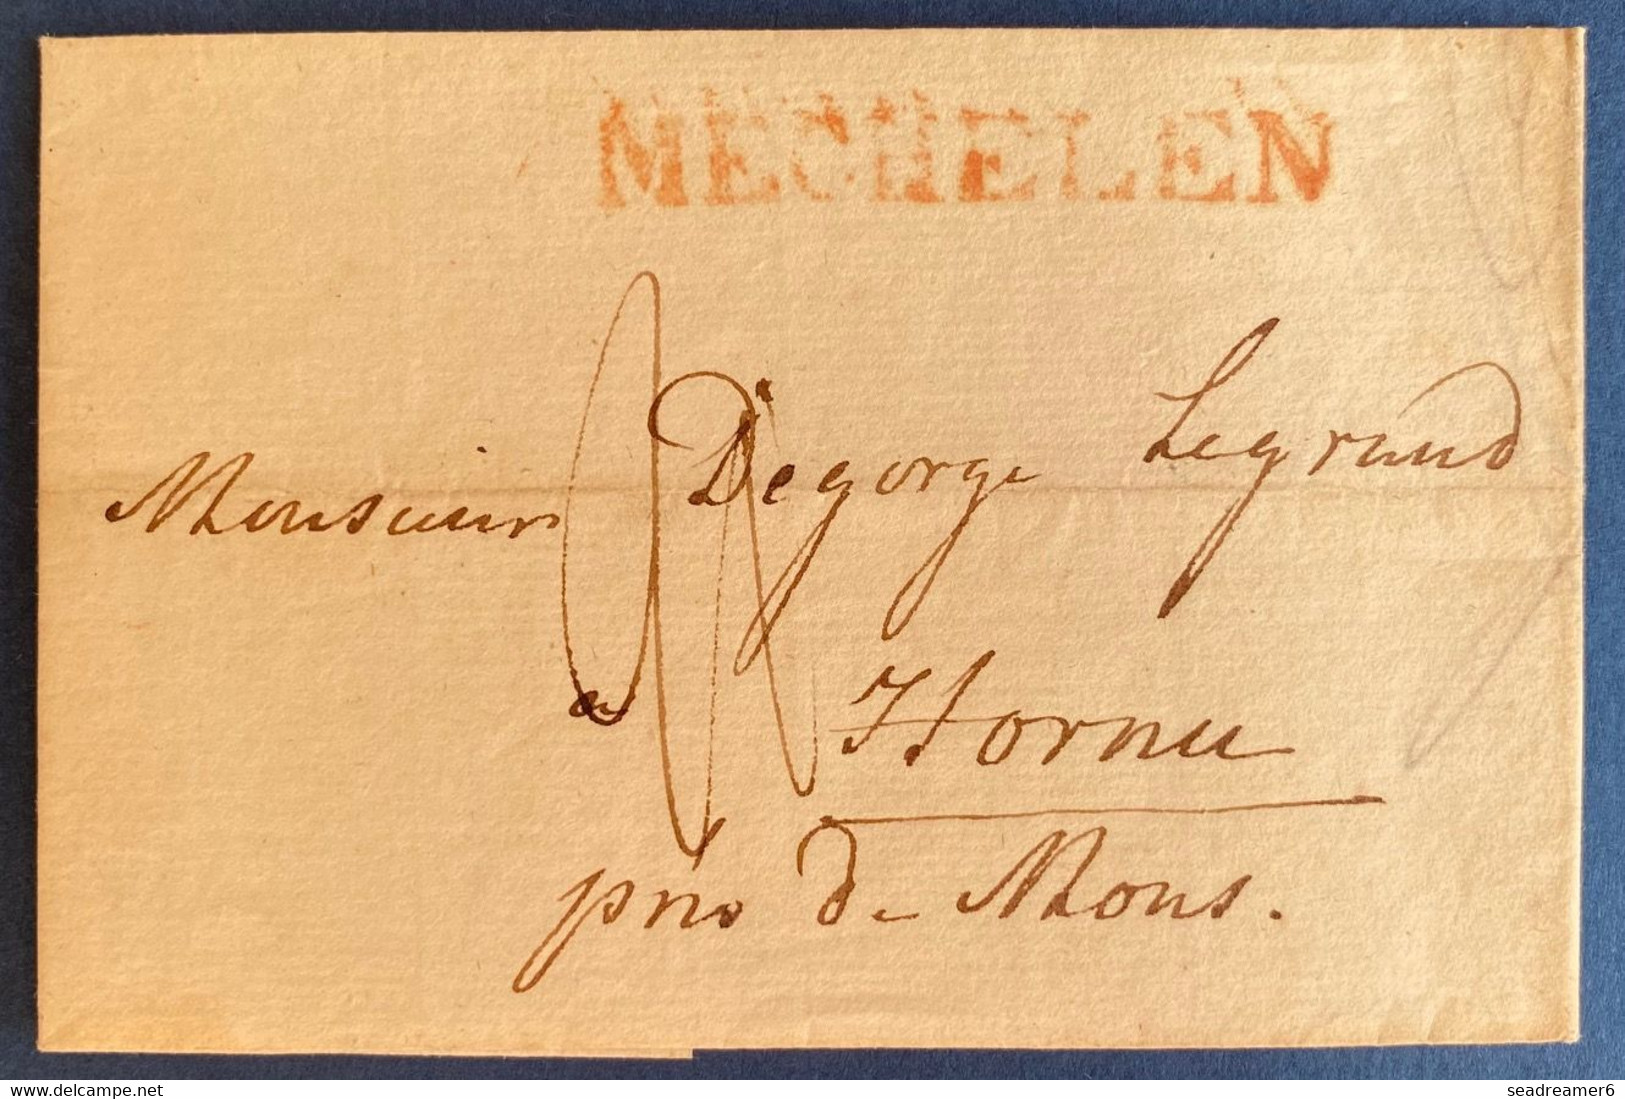 MECHELEN
Monsieur Degorge Legrand
a Hornu
près de Mons.
www.delcampe.net
seadreamer6